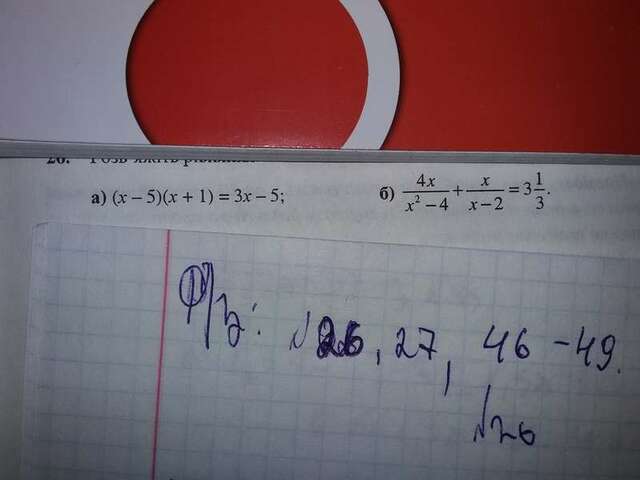 а) (x − 5)(x + 1) = 3x − 5; б) 4x/(x² − 4) + x/(x − 2) = 3 1/3.
№26, 27, 46 − 49.
№26